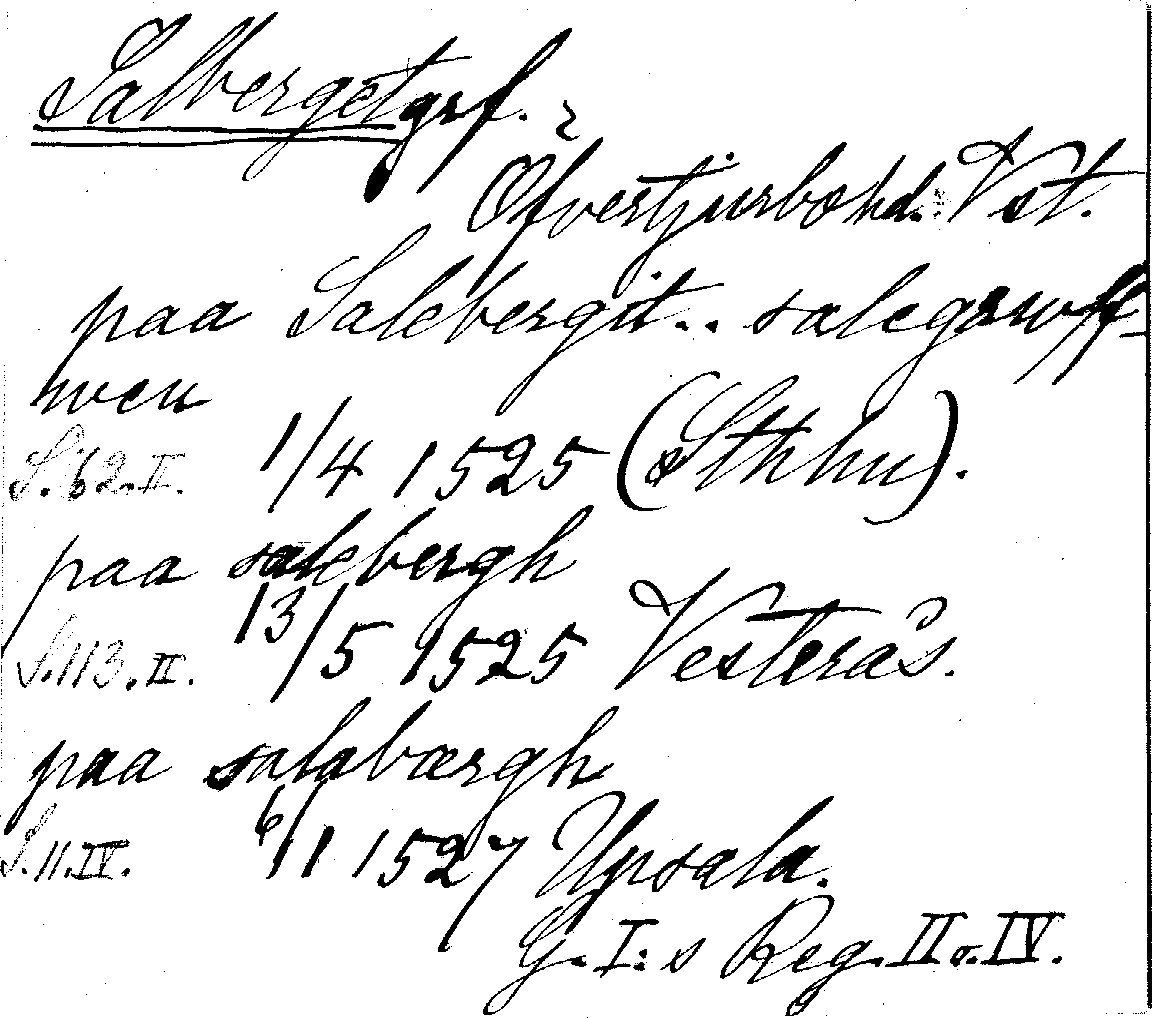 Salberget grf. ?
Öfvertjurbo hd. Vst.
paa Salebergit .. salegrwff-
wen
S. 62. II. 1/4 1525 (Sthlm).
paa salebergh
S. 113. II. 13/5 1525 Vesterås.
paa salabærgh
S. 11. IV. 6/1 1527 Upsala.
G. I:s Reg. II o. IV.